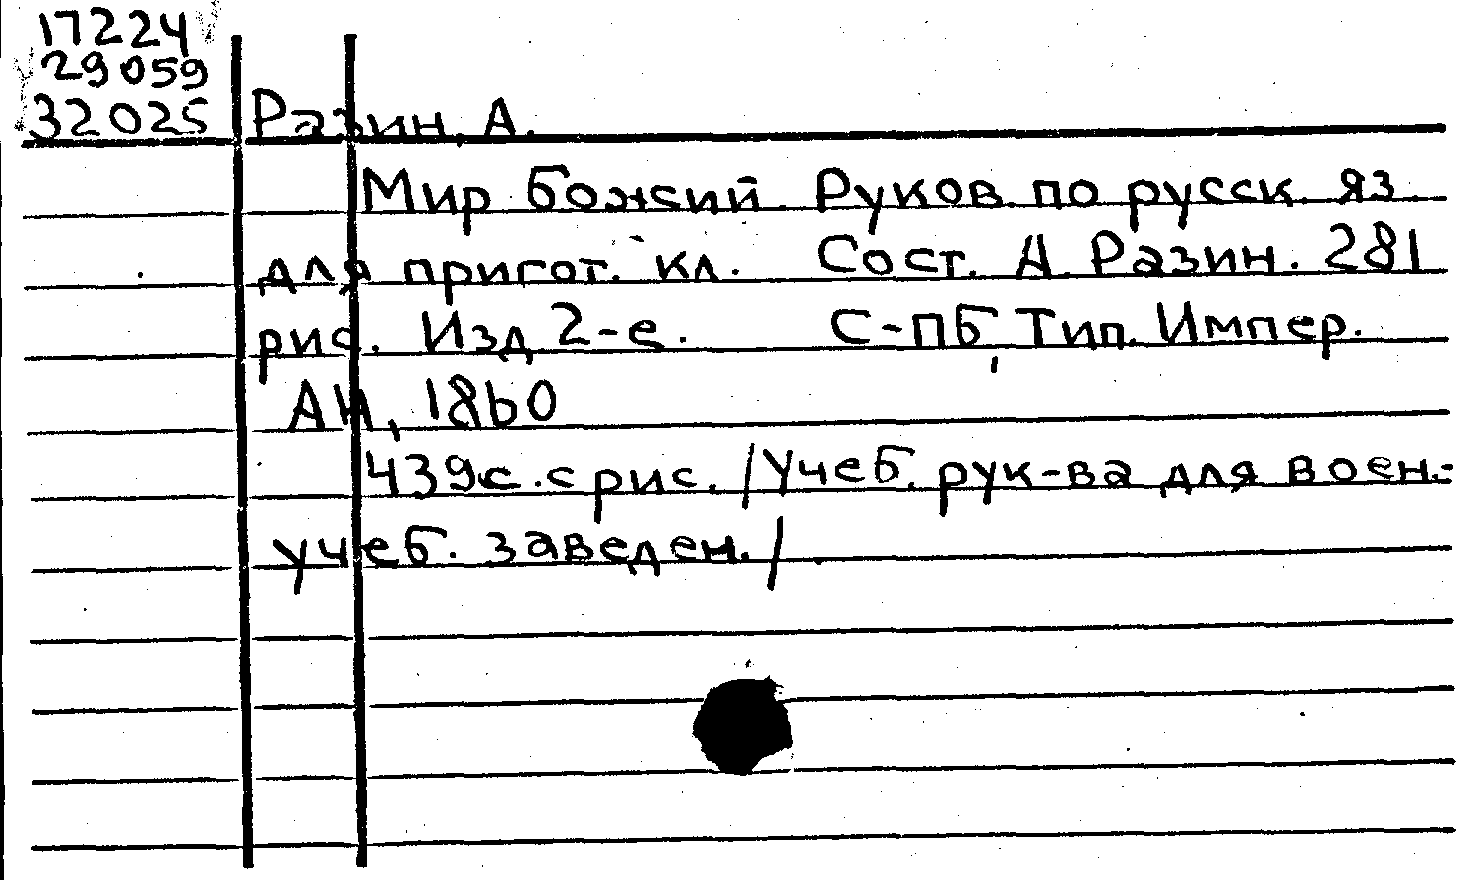 17224
29059
32025 Разин, А.
Мир божий. Руков. по русск. яз.
для пригот. кл. Сост. А. Разин. 281
рис. Изд. 2-е. С-ПБ, Тип. Импер.
АН, 1860
439с. с рис. /Учеб. рук-ва для воен.-
учеб. заведен./